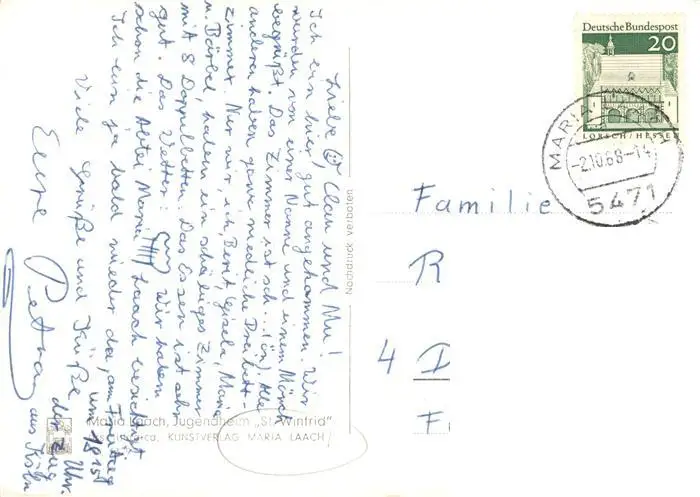 Liebe Clan und Mu!
Ich bin hier gut angekommen. Wir
wurden von einer Nonne und einem Mönch
begrüßt. Das Zimmer ist sch...(ön). Alle
anderen haben ganz niedliche Dreibett-
zimmer. Nur wir, ich, Berit, Gisela, Maria
u. Bärbel, haben ein schäbiges Zimmer
mit 8 Doppelbetten. Das Essen ist sehr
gut. Das Wetter: Wir haben
schon die Abtei Maria Laach besichtigt.
Ich bin ja bald wieder da, am Freitag
um 18 15 Uhr.
der Zug
aus Köln
Viele Grüße und Küße
Eure Petra
Maria Laach, Jugendheim „St. Winfrid"
KUNSTVERLAG MARIA LAACH
Nachdruck verboten
Deutsche Bundespost
20
LORSCH/HESSEN
MARIA
-2.10.68-14
5471
Familie
R
4 D
F